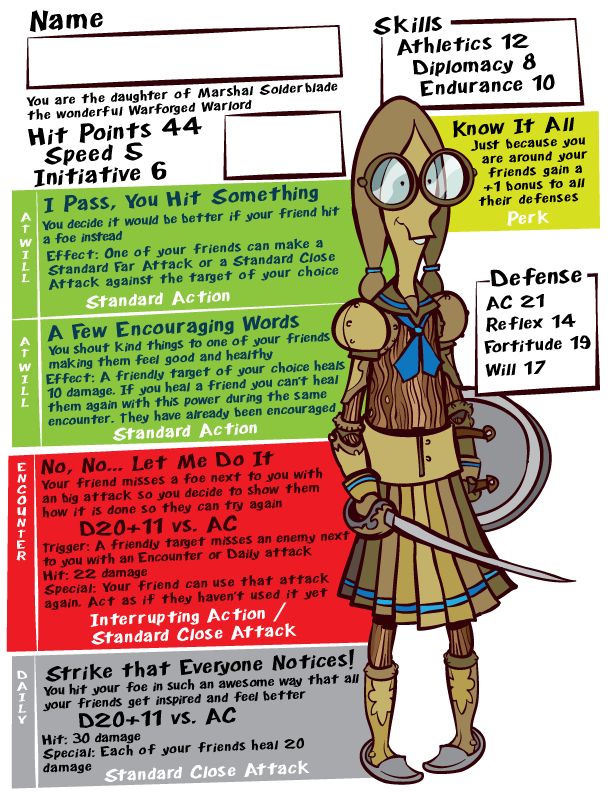 Name
You are the daughter of Marshal Solderblade
the wonderful Warforged Warlord
Hit Points 44
Speed 5
Initiative 6
Skills
Athletics 12
Diplomacy 8
Endurance 10
Know It All
Just because you
are around your
friends gain a
+1 bonus to all
their defenses
Perk
Defense
AC 21
Reflex 14
Fortitude 19
Will 17
AT WILL
I Pass, You Hit Something
You decide it would be better if your friend hit
a foe instead
Effect: One of your friends can make a
Standard Far Attack or a Standard Close
Attack against the target of your choice
Standard Action
AT WILL
A Few Encouraging Words
You shout kind things to one of your friends
making them feel good and healthy
Effect: A friendly target of your choice heals
10 damage. If you heal a friend you can't heal
them again with this power during the same
encounter. They have already been encouraged
Standard Action
ENCOUNTER
No, No... Let Me Do It
Your friend misses a foe next to you with
an big attack so you decide to show them
how it is done so they can try again
D20+11 vs. AC
Trigger: A friendly target misses an enemy next
to you with an Encounter or Daily attack
Hit: 22 damage
Special: Your friend can use that attack
again. Act as if they haven't used it yet
Interrupting Action /
Standard Close Attack
DAILY
Strike that Everyone Notices!
You hit your foe in such an awesome way that all
your friends get inspired and feel better
D20+11 vs. AC
Hit: 30 damage
Special: Each of your friends heal 20
damage
Standard Close Attack